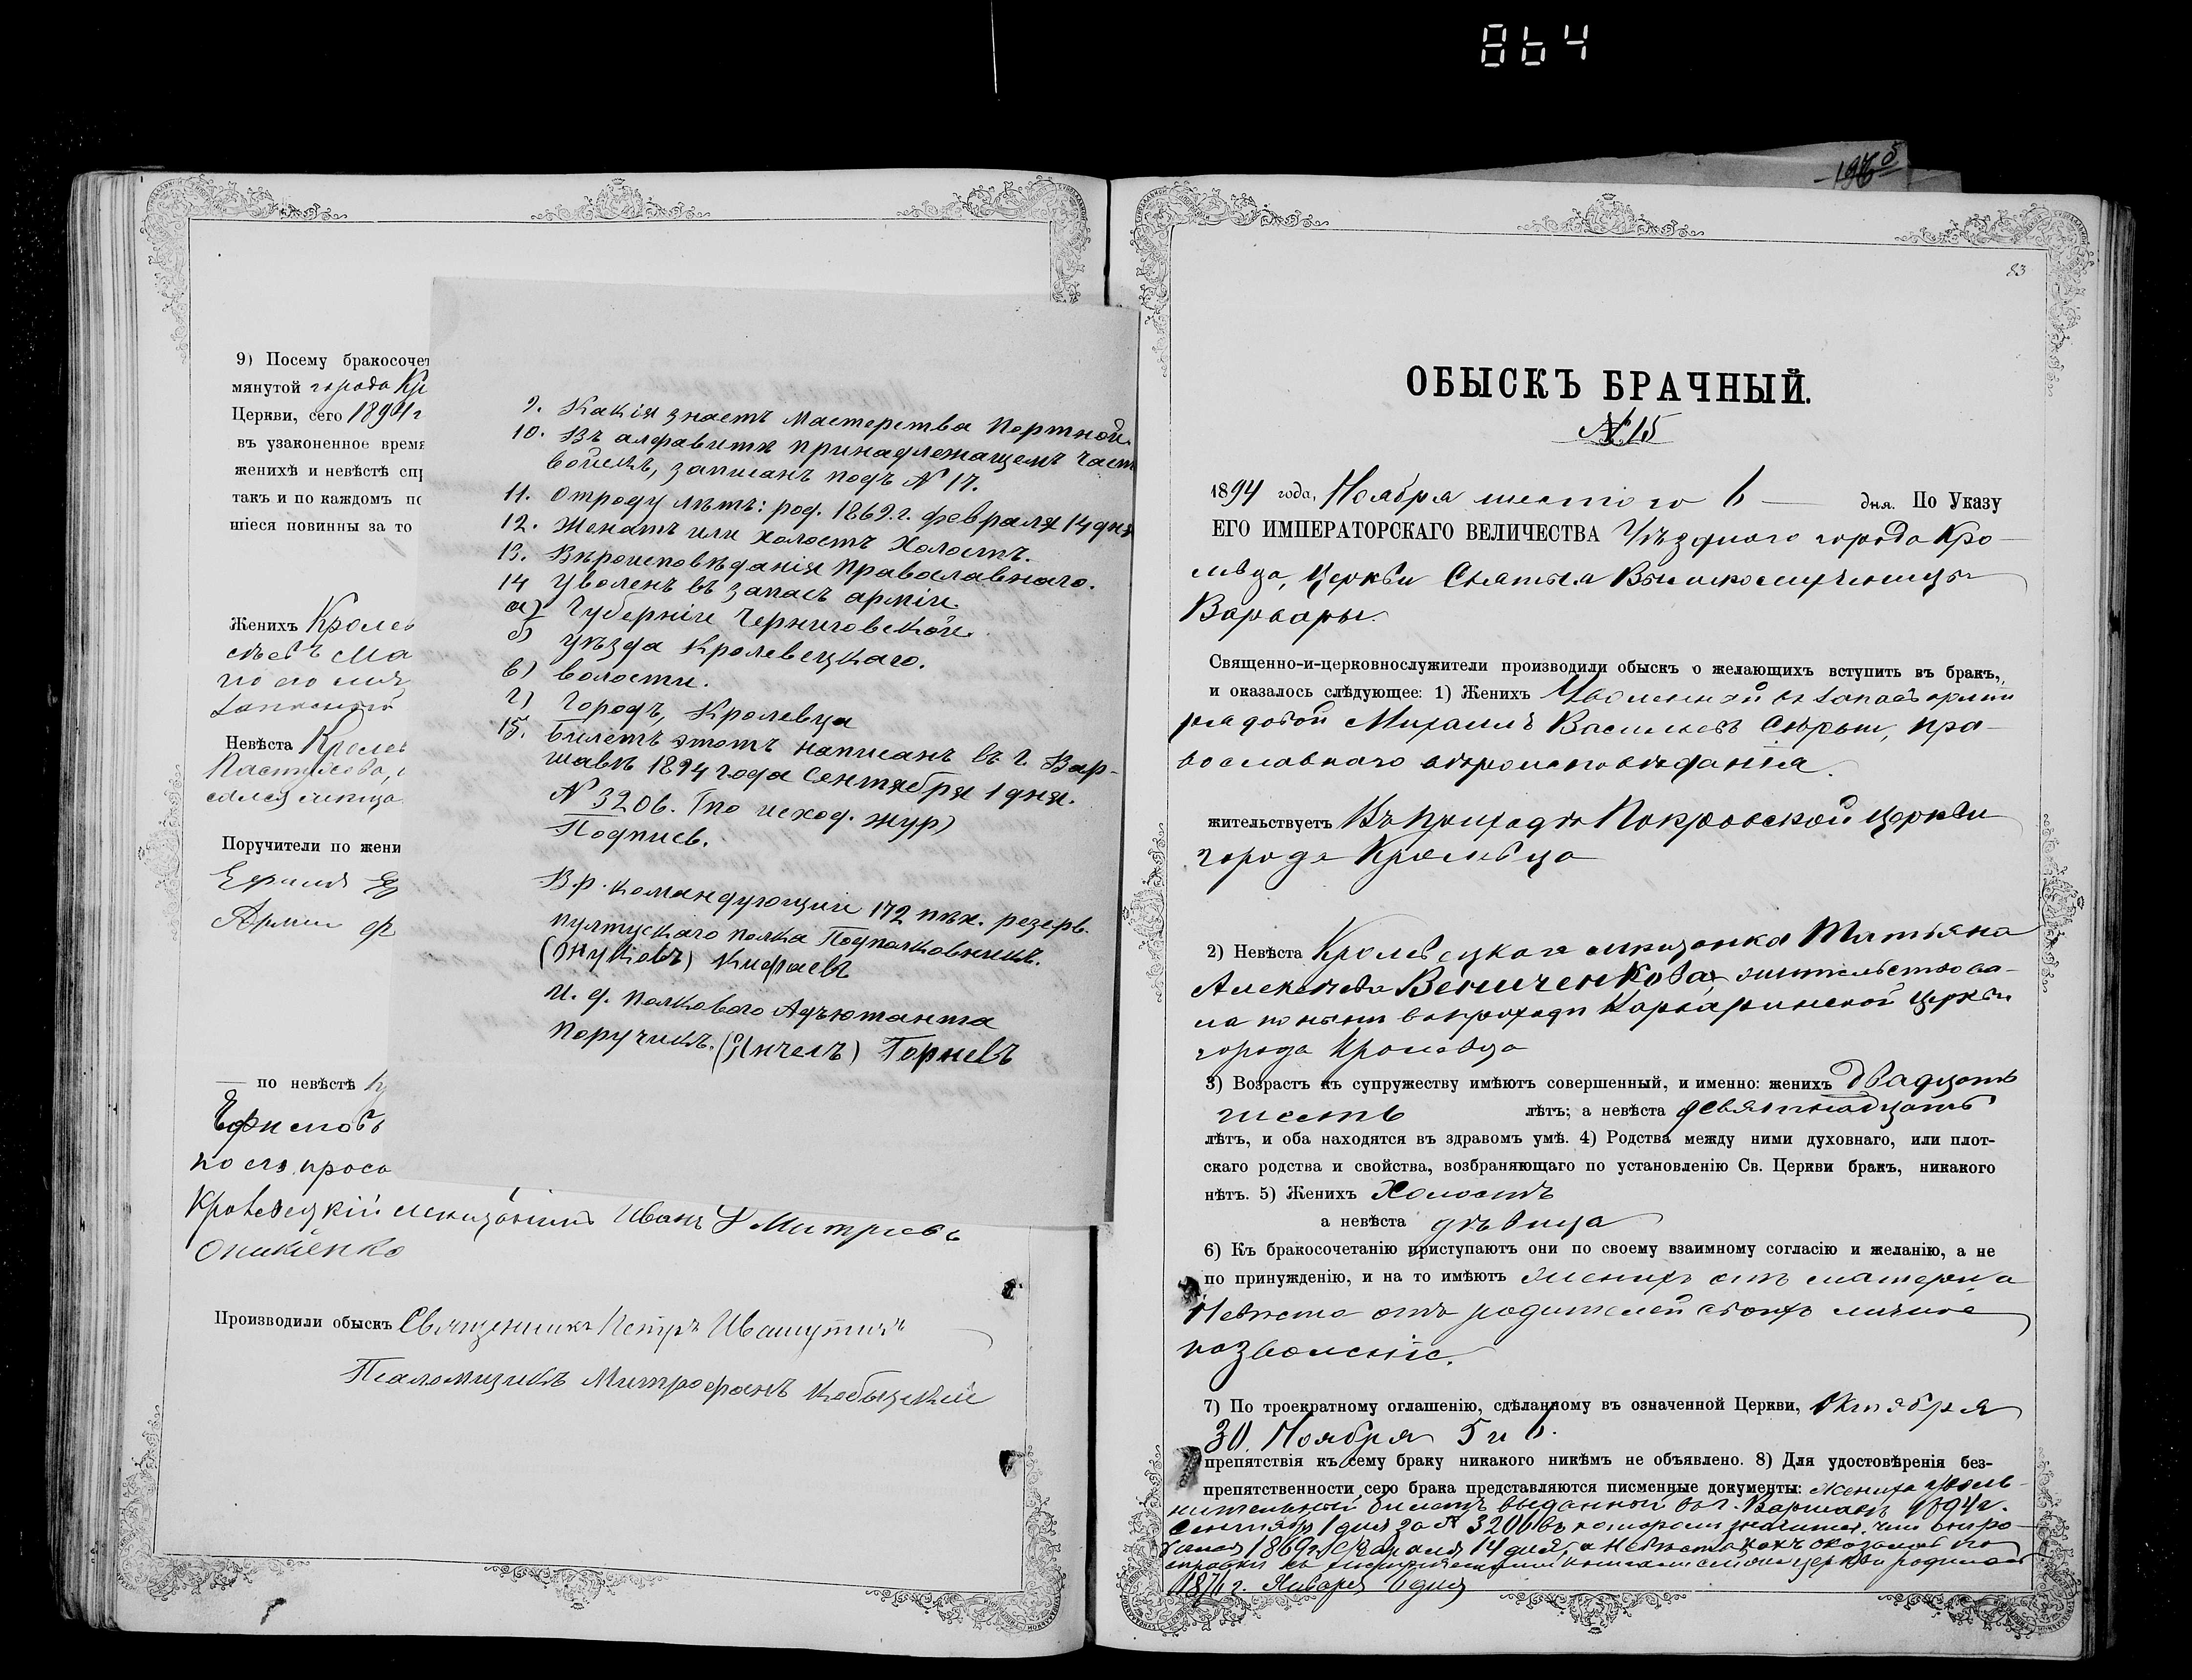 864
1965
9) Посему бракосочет
мянутой города Кр
Церкви, сего 1894 г
въ узаконенное время
женихѣ и невѣстѣ спр
такъ и по каждомъ по
шіеся повинны за то
Женихъ Кролев
Невѣста Кролев
Поручители по жени
— по невѣстѣ
Ефимовъ
по его прось
Кролевецкій мещанинъ Иванъ Дмитріевъ
Оникіенко
Производили обыскъ Священникъ Петръ Ивашутичъ
Псаломщикъ Митрофанъ Кобыщскій
9. Какія знаетъ мастерства Портной.
10. Въ алфавитѣ принадлежащемъ част
войскъ, записанъ подъ № 17.
11. Отроду лѣтъ: род. 1869. г. февраля 14 дня
12. Женатъ или холостъ Холостъ.
13. Вѣроисповѣданія Православнаго.
14 Уволенъ въ запасъ арміи.
а) Губерніи Черниговской.
б) уѣзда Кролевецкаго.
в) волости.
г) Городъ, Кролевца
15. Билетъ этотъ написанъ въ г. Вар-
шавѣ 1894 года Сентября 1 дня.
№ 3206. (по исход. жур)
Подпись.
Вр. командующій 172 пѣх. резерв.
пултускаго полка Подполковникъ.
И. д. полковаго Адъютанта
Поручикъ.
83
ОБЫСКЪ БРАЧНЫЙ.
№ 15
1894 года, Ноября шестого 6 — дня. По Указу
ЕГО ИМПЕРАТОРСКАГО ВЕЛИЧЕСТВА Уѣзднаго города Кро-
левца, Церкви Святыя Великомученицы
Варвары.
Священно-и-церковнослужители производили обыскъ о желающихъ вступить въ бракъ,
и оказалось слѣдующее: 1) Женихъ Уволенный въ запасъ арміи
рядовой Михаилъ Васильевъ Сѣрый, пра-
вославнаго вѣроисповѣданія.
жительствуетъ Въ приходѣ Покровской церкви
города Кролевца
2) Невѣста Кролевецкая мѣщанка Татьяна
Алексѣева Величенкова жительствова-
ла понынѣ въ приходѣ Варваринской церкви
города Кролевца
3) Возрастъ къ супружеству имѣютъ совершенный, и именно: женихъ двадцать
шесть лѣтъ; а невѣста девятнадцать
лѣтъ, и оба находятся въ здравомъ умѣ. 4) Родства между ними духовнаго, или плот-
скаго родства и свойства, возбраняющаго по установленію Св. Церкви бракъ, никакого
нѣтъ. 5) Женихъ Холостъ
а невѣста дѣвица
6) Къ бракосочетанію приступаютъ они по своему взаимному согласію и желанію, а не
по принужденію, и на то имѣютъ женихъ отъ матери, а
Невѣста отъ родителей своихъ личное
позволеніе.
7) По троекратному оглашенію, сдѣланному въ означенной Церкви, Октября
30. Ноября 5 и 6.
препятствія къ сему браку никакого никѣмъ не объявлено. 8) Для удостовѣренія без-
препятственности сего брака представляются писменные документы: Жениха уволь-
нительный билетъ выданный въ г. Варшавѣ 1894 г.
Сентября 1 дня за № 3206 въ которомъ значится, что онъ ро-
дился 1869 г. февраля 14 дня, а Невѣста какъ оказалось по
церкви родилась
187 г. Января 6 дня